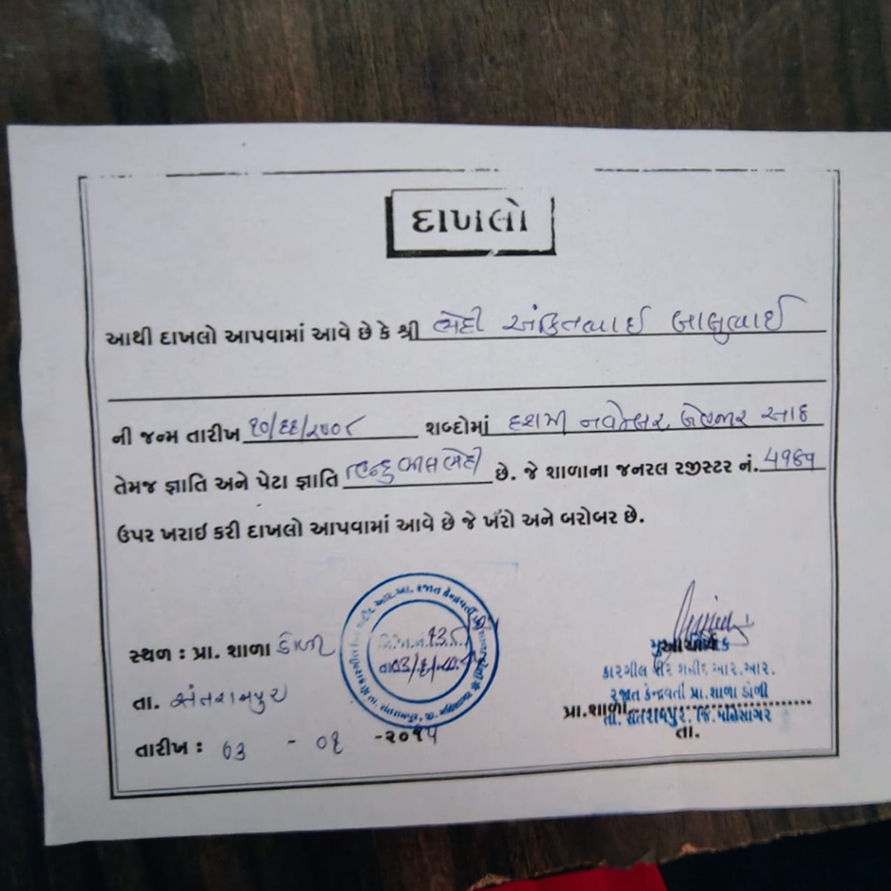 દાખલો
આથી દાખલો આપવામાં આવે છે કે શ્રી અંકિતભાઈ બાબુભાઈ
ની જન્મ તારીખ ૧૦/૧૧/૨૦૦૮ શબ્દોમાં દશમી નવેમ્બર, બેહજાર આઠ
તેમજ જ્ઞાતિ અને પેટા જ્ઞાતિ છે. જે શાળાના જનરલ રજીસ્ટર નં.
ઉપર ખરાઈ કરી દાખલો આપવામાં આવે છે જે ખરો અને બરોબર છે.
સ્થળ : પ્રા. શાળા ડોળી
તા. સંતરામપુર
તારીખ : ૦૩ - ૦૬ -૨૦૧૫
કારગીલ વીર શહીદ આર.આર.
રજાત કેન્દ્રવર્તી પ્રા.શાળા ડોળી
પ્રા.શાળા
તા. સંતરામપુર, જિ. મહિસાગર
તા.